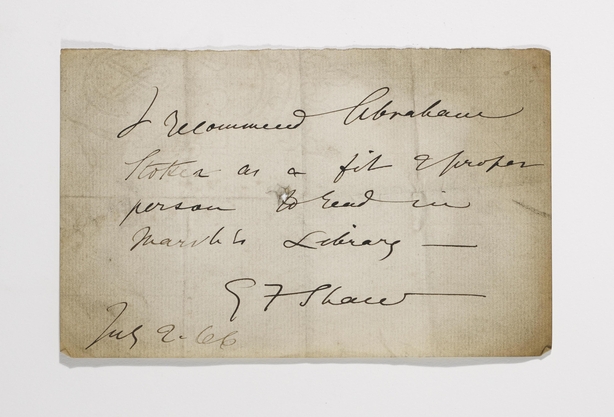 I recommend Abraham
Stoker as a fit & proper
person to read in
Marsh's Library —
G F Shaw
July 2. 66